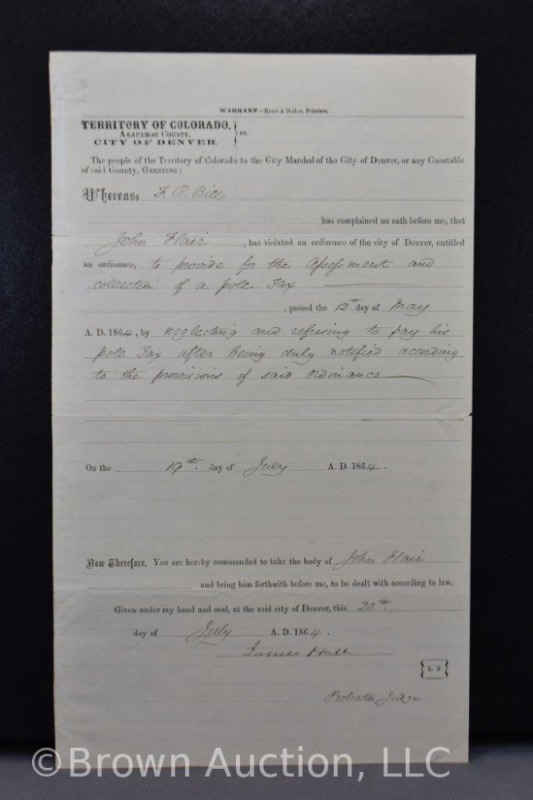 WARRANT.
TERRITORY OF COLORADO,
ARAPAHOE COUNTY, } ss.
CITY OF DENVER.
The people of the Territory of Colorado to the City Marshal of the City of Denver, or any Constable
of said County, GREETING:
Whereas, F. P. Bill
has complained on oath before me, that
John Flair, has violated an ordinance of the city of Denver, entitled
an ordinance, to provide for the Assessment and
collection of a pole tax
, passed the 12th day of May
A. D. 1864, by neglecting and refusing to pay his
pole tax after being duly notified according
to the provisions of said ordinance
On the 19th day of July A. D. 1864.
Now Therefore, You are hereby commanded to take the body of John Flair
and bring him forthwith before me, to be dealt with according to law.
Given under my hand and seal, at the said city of Denver, this 20th
day of July A. D. 1864.
James Hall
L. S.
Probate Judge
©Brown Auction, LLC